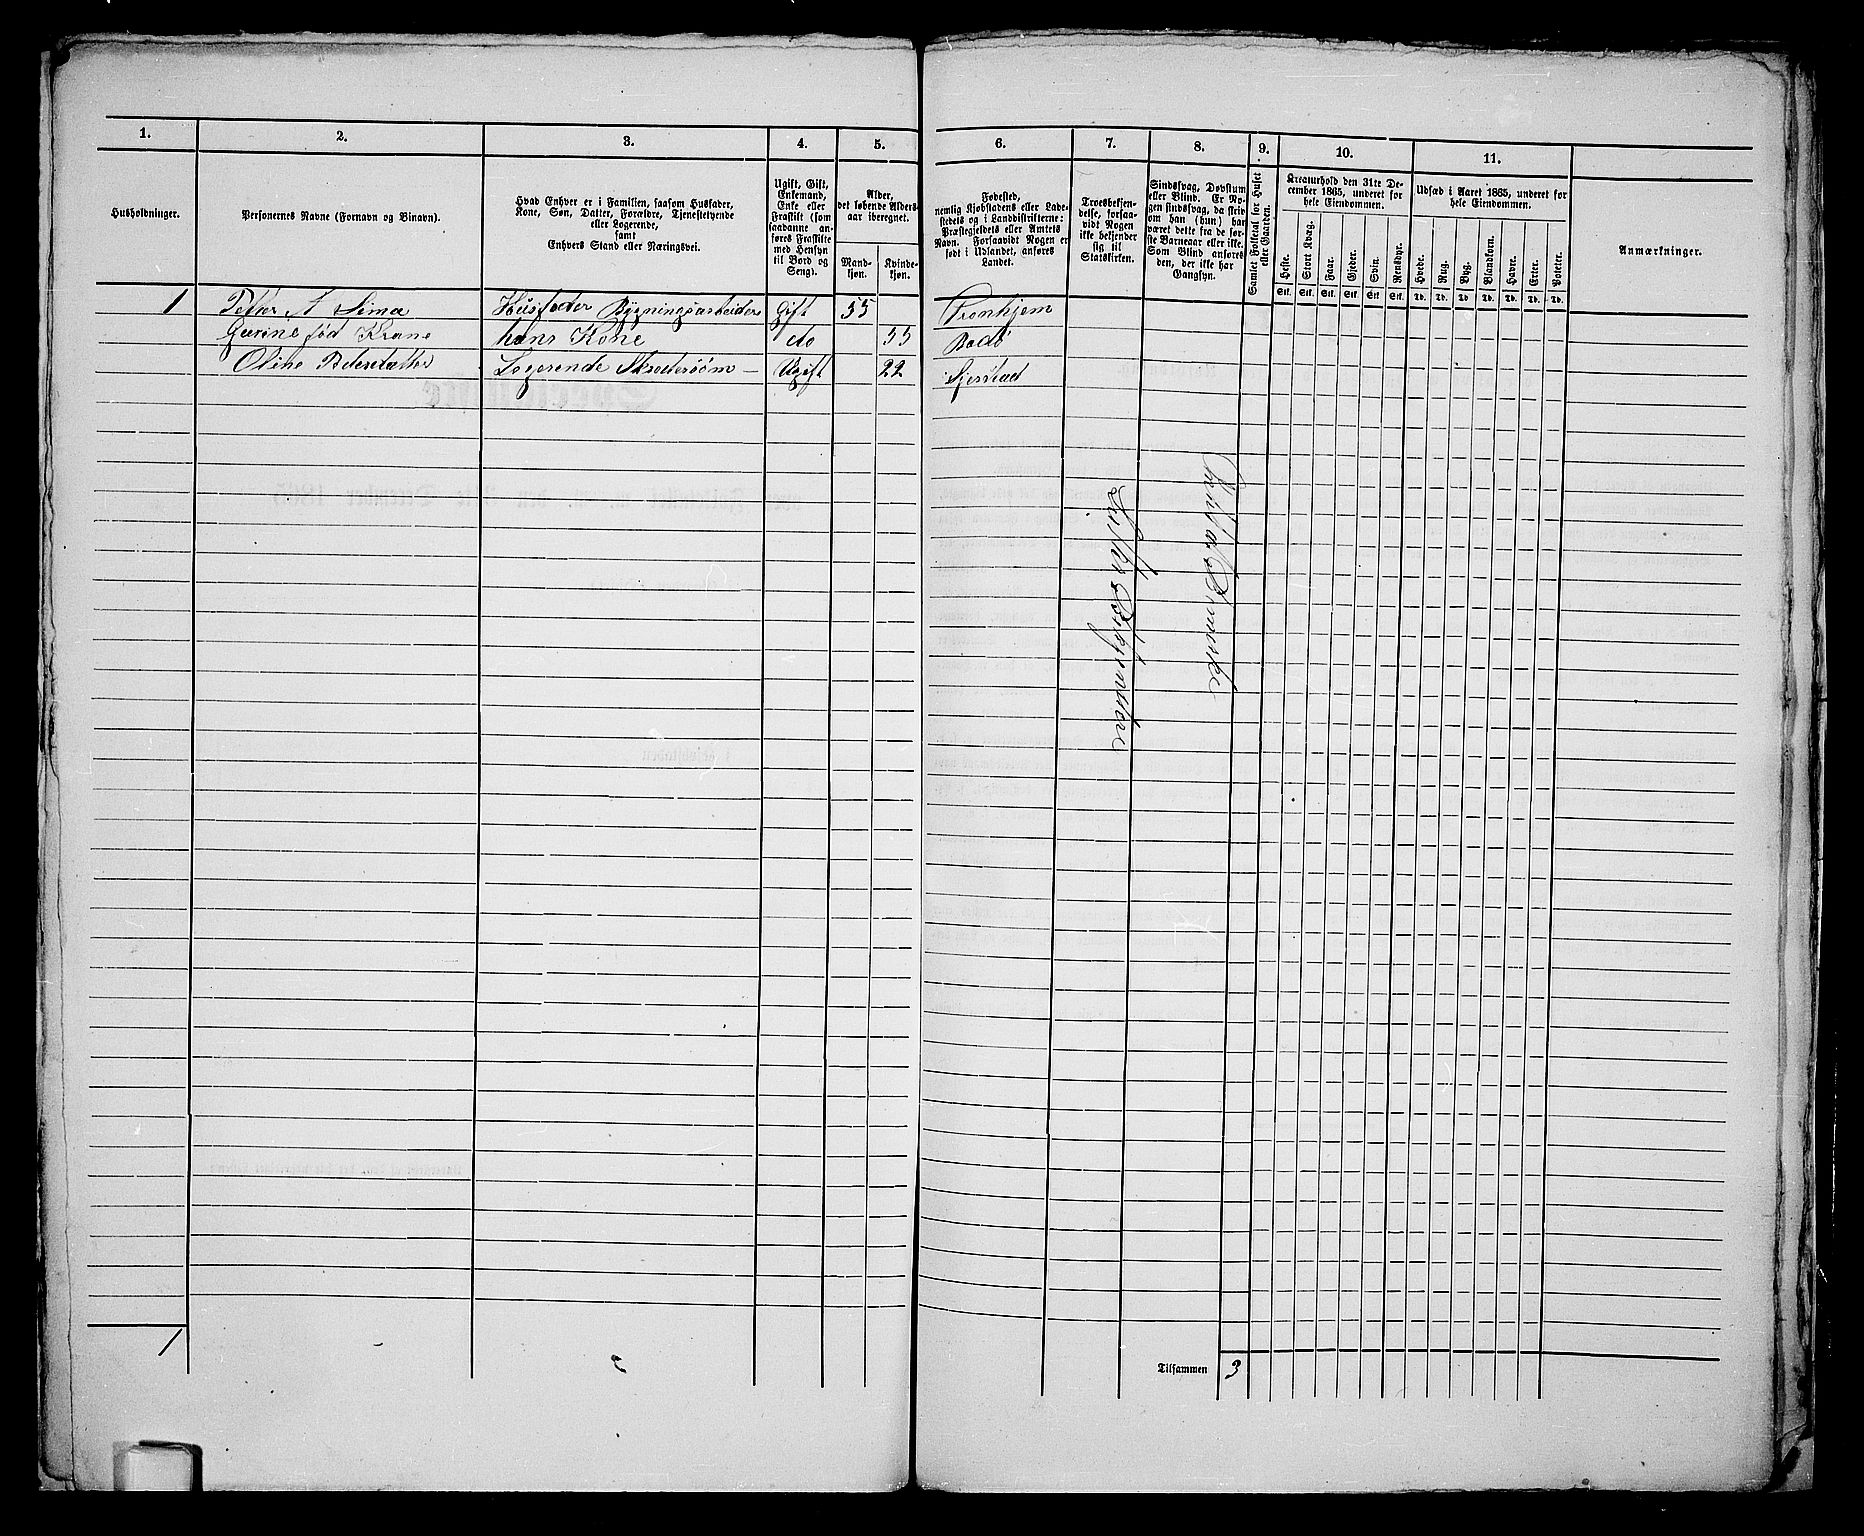 1. 2. 3. 4. 5. 6. 7. 8. 9. 10. 11.
Husholdninger.
Personernes Navne (Fornavn og Binavn).
Hvad Enhver er i Familien, saasom Husfader,
Kone, Søn, Datter, Forældre, Tjenestetyende
eller Logerende,
samt
Enhvers Stand eller Næringsvei.
Ugift, Gift,
Enkemand,
Enke eller
Fraskilt (som
saadanne an-
føres Fraskilte
med Hensyn
til Bord og
Seng).
Alder,
det løbende Alders-
aar iberegnet.
Mand-
kjøn.
Kvinde-
kjøn.
Fødested,
nemlig Kjøbstadens eller Lade-
stedets og i Landdistrikterne:
Præstegjeldets eller Amtets
Navn. Forsaavidt Nogen er
født i Udlandet, anføres
Landet.
Troesbekjen-
delse, forsaa-
vidt Nogen
ikke bekjender
sig til
Statskirken.
Sindssvag, Døvstum
eller Blind. Er No-
gen sindssvag, da skriv
om han (hun) har
været dette fra de før-
ste Barneaar eller ikke.
Som Blind anføres
den, der ikke har
Gangsyn.
Samlet Folketal for Huset
eller Gaarden.
Kreaturhold den 31te De-
cember 1865, underet for
hele Eiendommen.
Heste. Stort Kvæg. Faar. Gjeder. Svin. Rensdyr.
Stk. Stk. Stk. Stk. Stk. Stk.
Udsæd i Aaret 1865, underet for
hele Eiendommen.
Hvede. Rug. Byg. Blandkorn. Havre. Erter. Poteter.
Td. Td. Td. Td. Td. Td. Td.
Anmærkninger.
1 Petter A Sima Husfader Bygningsarbeider Gift 55 Tronhjem
født Krane hans Kone do 55 Bodø
Oline Petersdatter Logerende Ugift 22
1
Tilsammen 3